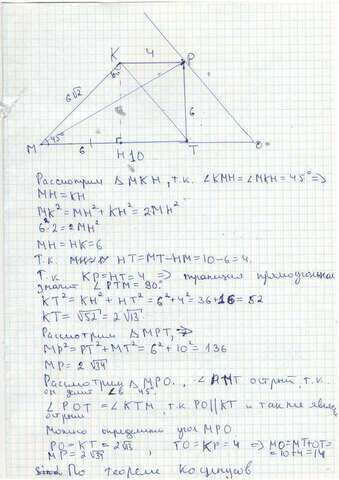 K 4 P
6√2
6
45°
M 6 H 10 T O
Рассмотрим △MKH, т.к. ∠KMH=∠MKH=45° ⇒
MH=KH
MK²=MH²+KH²=2MH²
6²·2=2MH²
MH=HK=6
Т.к. HT=MT-HM=10-6=4.
Т.к. KP=HT=4 ⇒ трапеция прямоугольная
Значит ∠PTM=90°
KT²=KH²+HT²=6²+4²=36+16=52
KT=√52=2√13
Рассмотрим △MPT, ⇒
MP²=PT²+MT²=6²+10²=136
MP=2√34
Рассмотрим △MPO., ∠ острый, т.к.
45°
∠POT=∠KTM, т.к. PO||KT и также
острый
Можно определить угол MPO
PO=KT=2√13, TO=KP=4 ⇒ MO=MT+OT=
MP=2√34 =10+4=14
По теореме косинусов